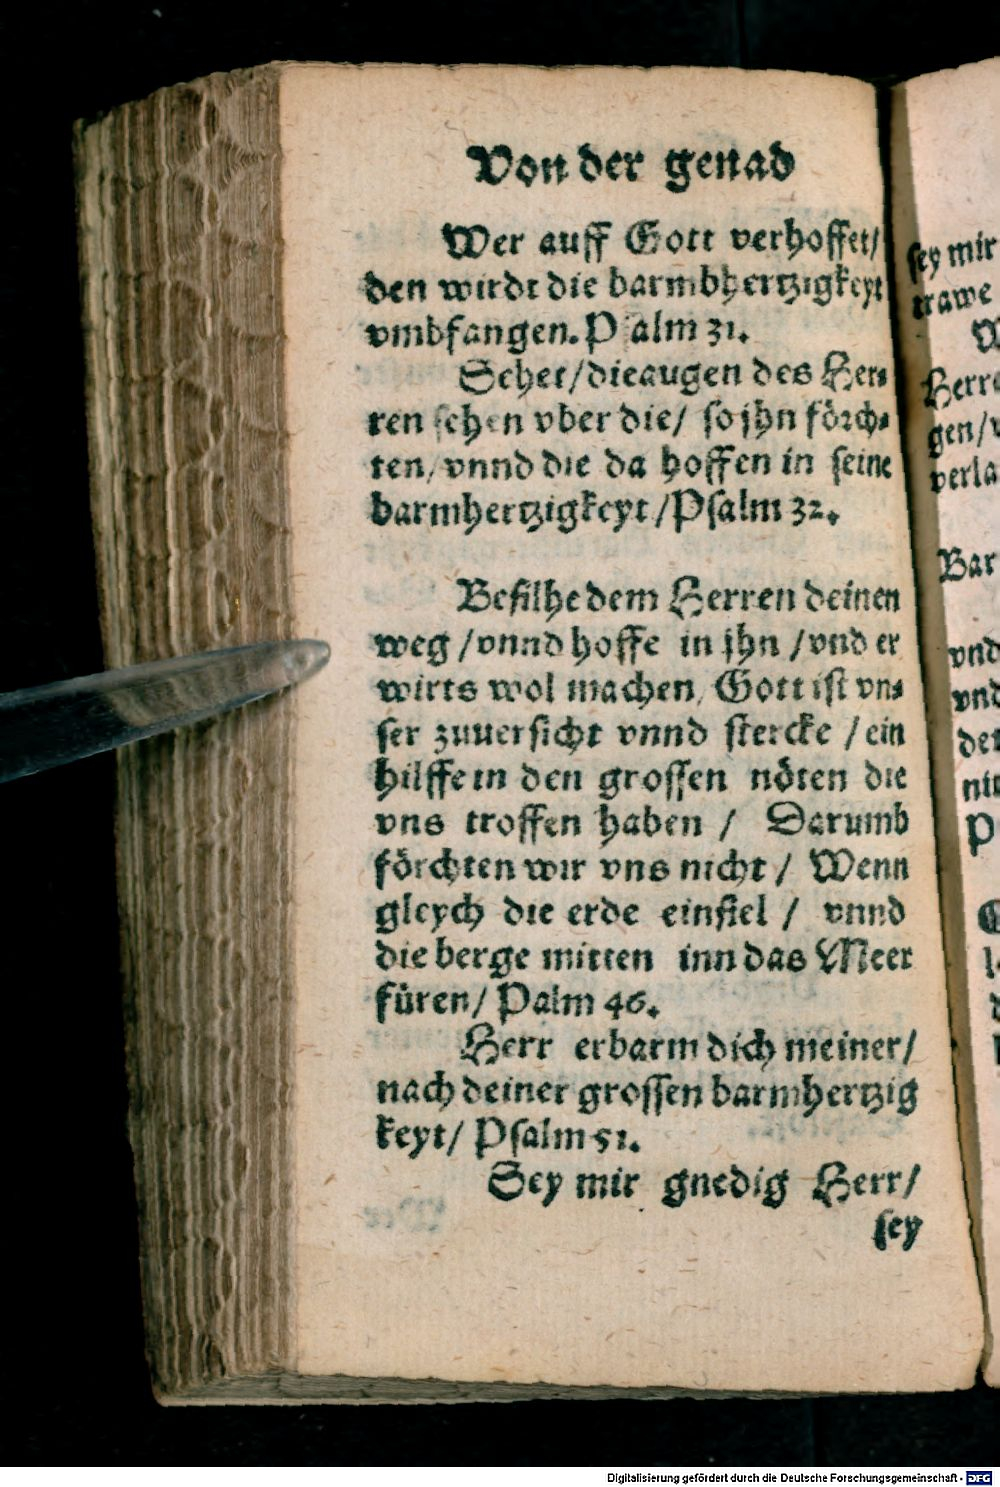 Von der genad
Wer auff Gott verhoffet/
den wirdt die barmbhertzigkeyt
vmbfangen. Psalm 31.
Sehet/dieaugen des Her⸗
ren sehen vber die/ so jhn förch⸗
ten/vnnd die da hoffen in seine
barmhertzigkeyt/Psalm 32.
Befilhe dem Herren deinen
weg/vnnd hoffe in jhn/vnd er
wirts wol machen, Gott ist vn⸗
ser zuuersicht vnnd stercke/ein
hilffe in den grossen nöten die
vns troffen haben/ Darumb
förchten wir vns nicht/ Wenn
gleych die erde einfiel/ vnnd
die berge mitten inn das Meer
füren/ Palm 46.
Herr erbarm dich meiner/
nach deiner grossen barmhertzig
keyt/ Psalm 51.
Sey mir gnedig Herr/
sey
sey mir
trawe
Herre
gen/
verla
Bar
vnd
vnd
Digitalisierung gefördert durch die Deutsche Forschungsgemeinschaft - DFG